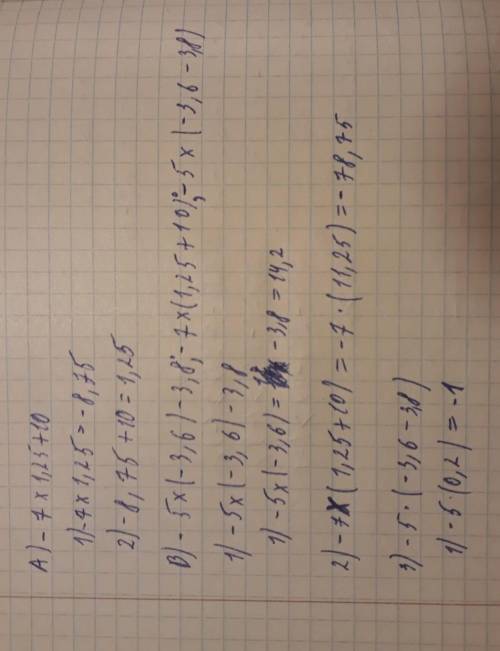 А) - 7 x 1,25 + 10
1) -7 x 1,25 = - 8,75
2) - 8,75 + 10 = 1,25
В) - 5x(-3,6) - 3,8; - 7x(1,25+10); - 5x(-3,6 - 3,8)
1) - 5x(-3,6) - 3,8
1) - 5x(-3,6) = 18 - 3,8 = 14,2
2) - 7x(1,25+10) = -7 · (11,25) = - 78,75
3) - 5 · (-3,6 - 3,8)
1) - 5 · (0,2) = -1